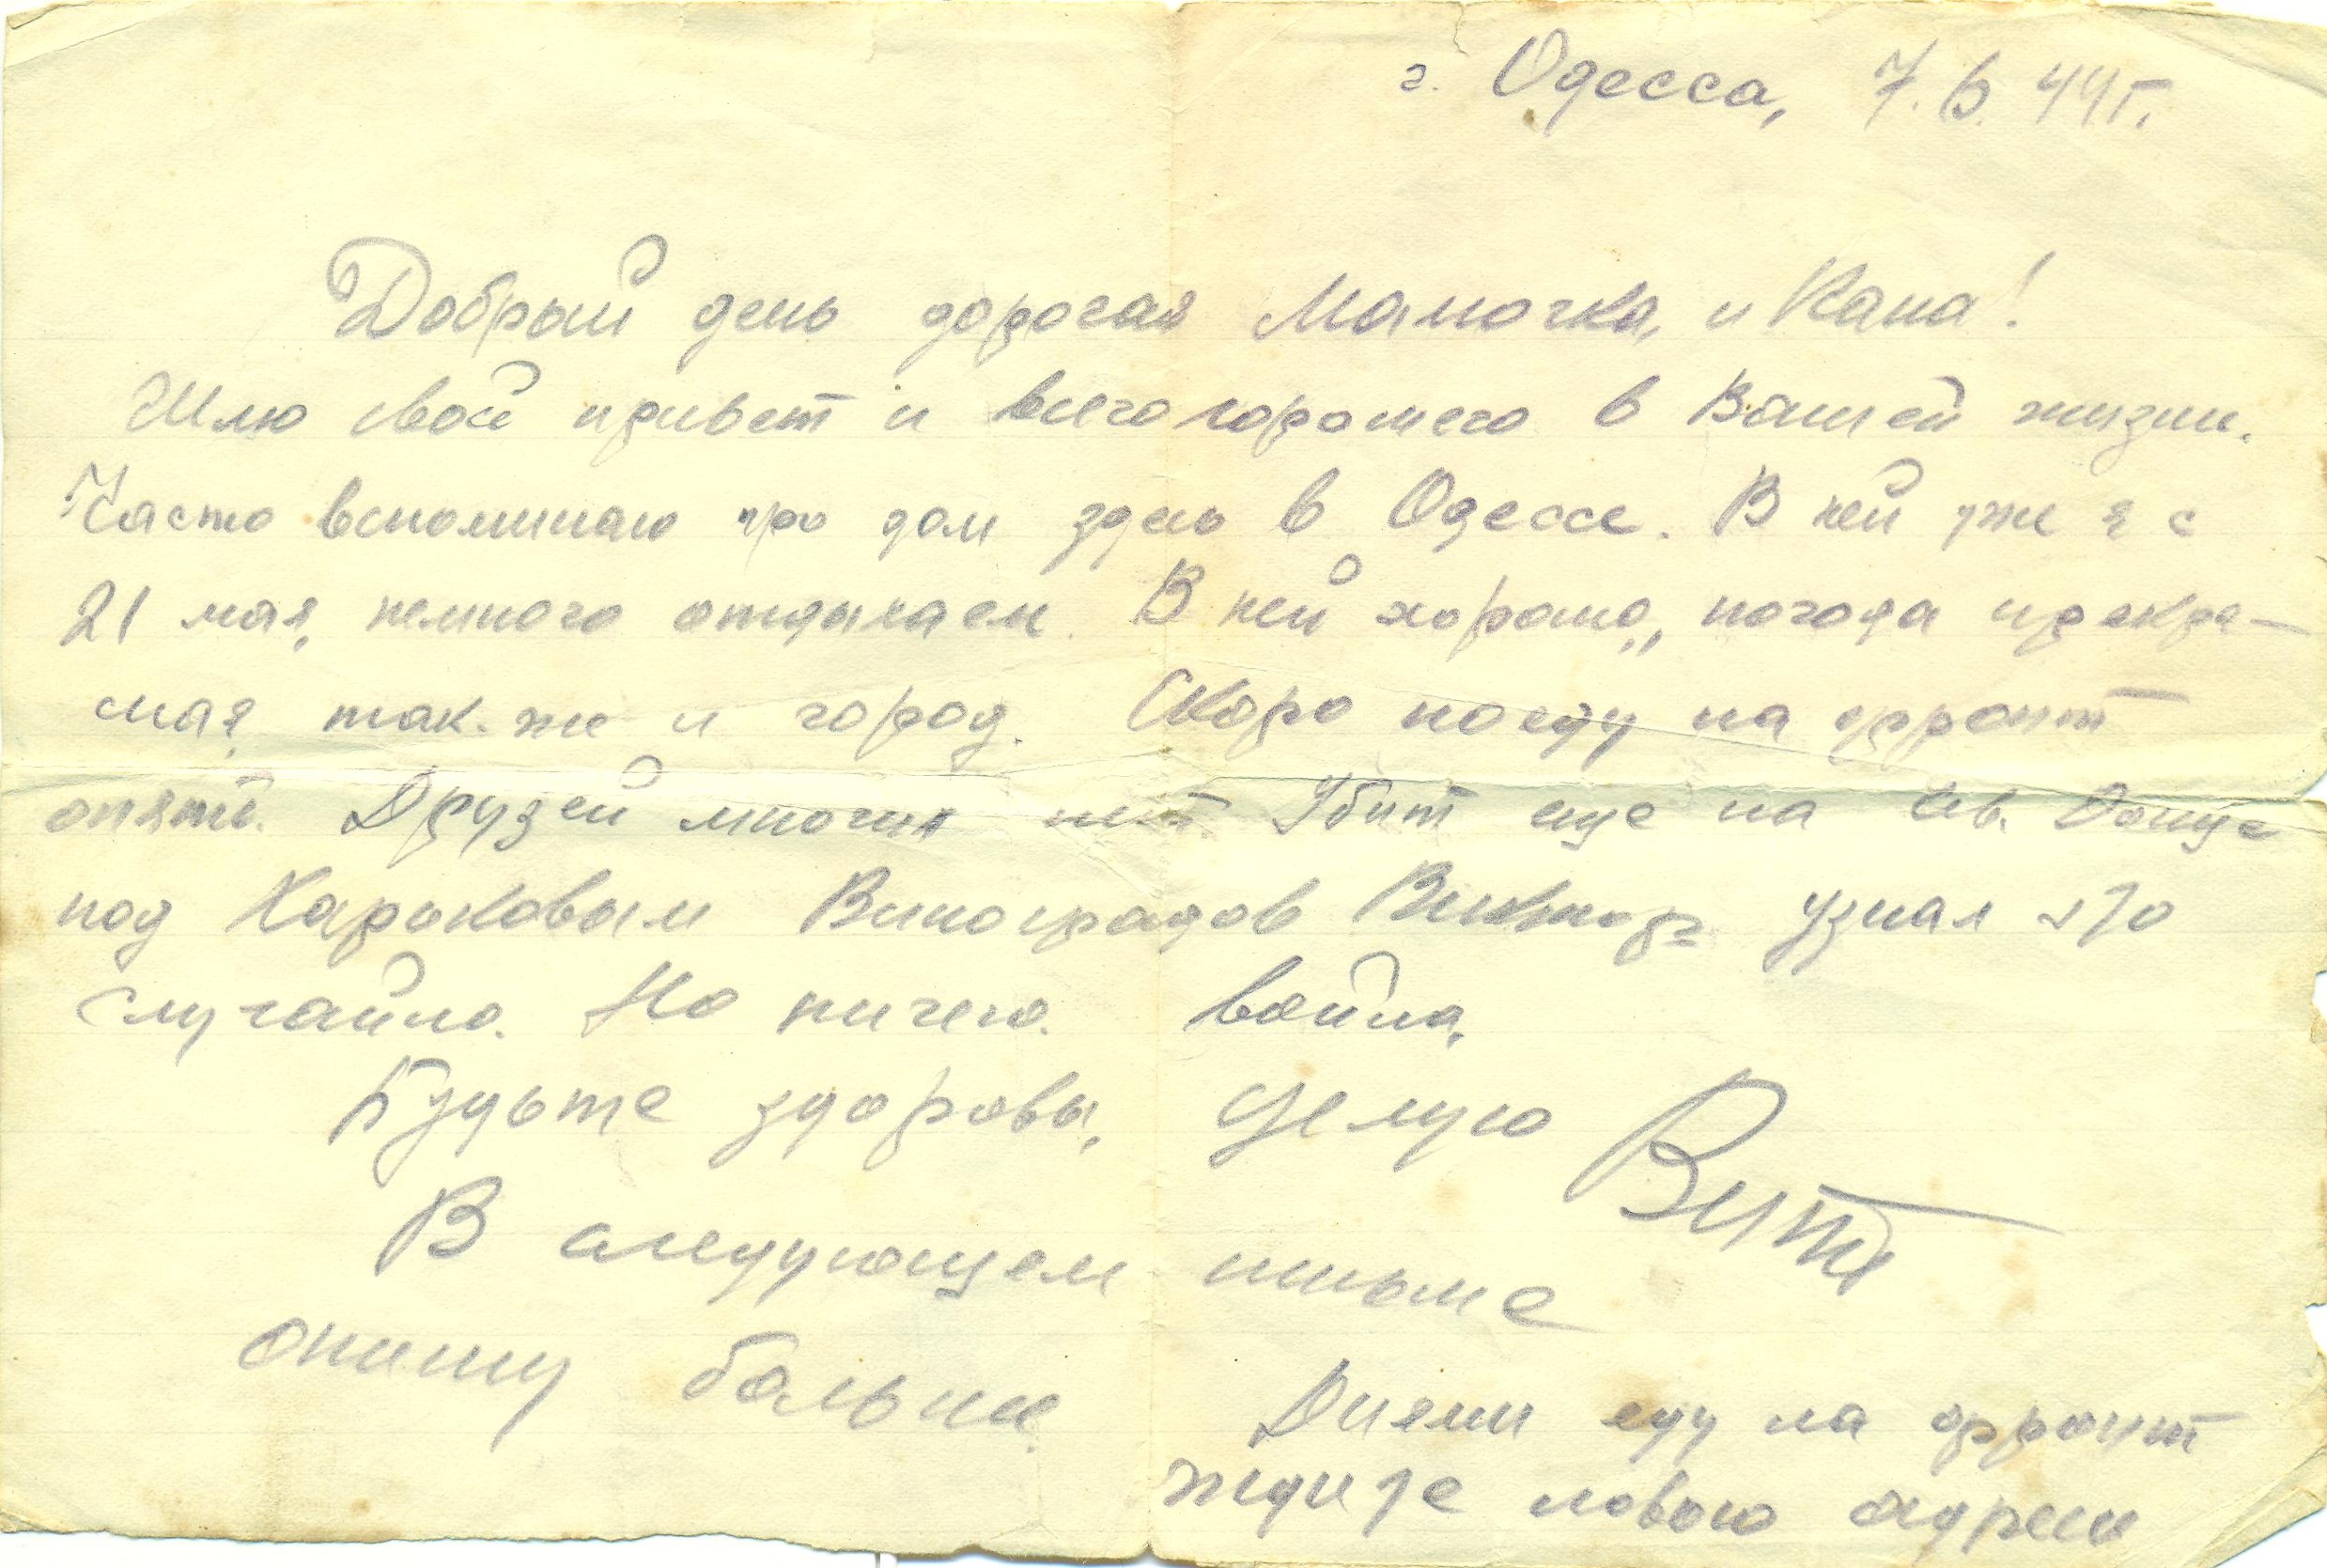 г. Одесса, 7.6.44г.
Добрый день дорогая Мамочка, и Капа!
Шлю свой привет и всего хорошего в Вашей жизни.
Часто вспоминаю про дом здесь в Одессе. В ней уже я с
21 мая, немного отдыхаем. В ней хорошо, погода прекра-
сная, так-же и город. Скоро поеду на фронт
опять. Друзей многих нет. Убит еще на Сев. Донце
под Харьковым Виноградов Виктор узнал это
случайно. Но ничего. война.
Будьте здоровы, целую Витя
В следующем письме
опишу больше.
Днями еду на фронт
ждите нового адреса